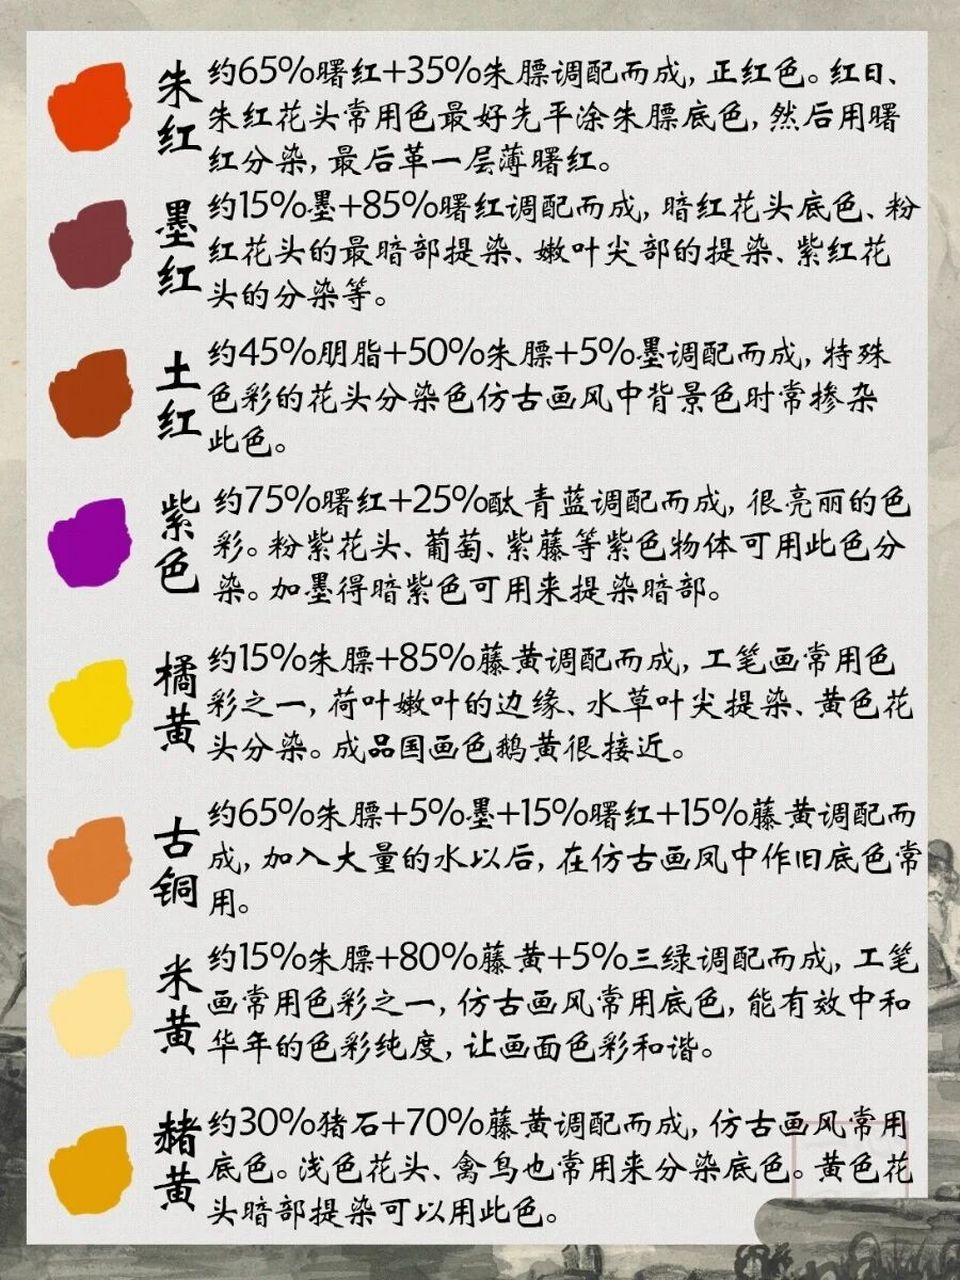 朱红
约65%曙红+35%朱膘调配而成,正红色。红日、
朱红花头常用色最好先平涂朱膘底色,然后用曙
红分染,最后革一层薄曙红。
墨红
约15%墨+85%曙红调配而成,暗红花头底色、粉
红花头的最暗部提染、嫩叶尖部的提染、紫红花
头的分染等。
土红
约45%胭脂+50%朱膘+5%墨调配而成,特殊
色彩的花头分染色仿古画风中背景色时常掺杂
此色。
紫色
约75%曙红+25%酞青蓝调配而成,很亮丽的色
彩。粉紫花头、葡萄、紫藤等紫色物体可用此色分
染。加墨得暗紫色可用来提染暗部。
橘黄
约15%朱膘+85%藤黄调配而成,工笔画常用色
彩之一,荷叶嫩叶的边缘、水草叶尖提染、黄色花
头分染。成品国画色鹅黄很接近。
古铜
约65%朱膘+5%墨+15%曙红+15%藤黄调配而
成,加入大量的水以后,在仿古画风中作旧底色常
用。
米黄
约15%朱膘+80%藤黄+5%三绿调配而成,工笔
画常用色彩之一,仿古画风常用底色,能有效中和
华年的色彩纯度,让画面色彩和谐。
赭黄
约30%猪石+70%藤黄调配而成,仿古画风常用
底色。浅色花头、禽鸟也常用来分染底色。黄色花
头暗部提染可以用此色。